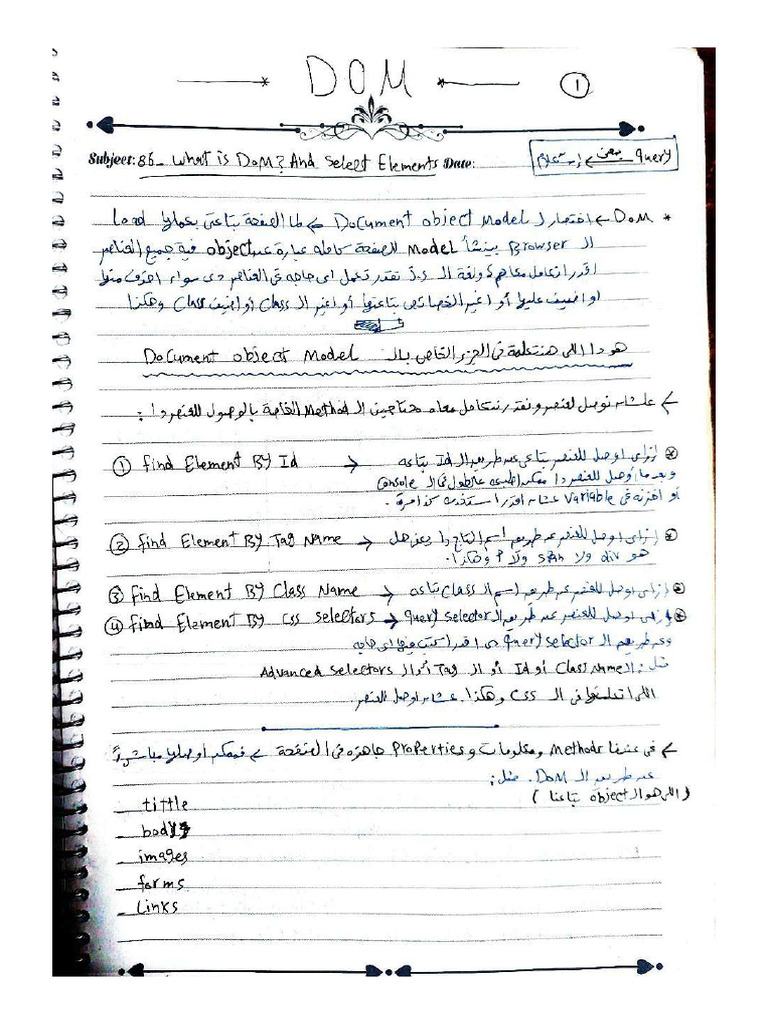 DOM
1
Subject: 86- What is DOM? And Select Elements Date:
Query بمعنى ← إستعلام
* DOM ← اختصار ل Document object Model ← لما الصفحة بتاعتى بعملها Load
ال Browser بينشأ Model للصفحة كامله عبارة عن object فيه جميع العناصر
اقدر اتعامل معاهم ولغة ال JS تقدر تعمل اى حاجه فى العناصر دى سواء احذف منها
او اضيف عليها أو اغير الخصائص بتاعتها أو اغير ال Class أو اضيف Class وهكذا
هو دا اللى هنتعلمة فى الجزء الخاص بال Document object Model
← علشان نوصل لعنصر ونقدر نتعامل معاه محتاجين ال Method الخاصة بالوصول للعنصر دا :
① find Element By Id → إزاى اوصل للعنصر بتاعى عن طريق ال Id بتاعه
وبعد ما أوصل للعنصر دا ممكن اطبعه علطول فى ال Console
أو اخزنه فى Variable عشان اقدر استخدمه كذا مرة .
② find Element By Tag Name → إزاى اوصل للعنصر عن طريق اسم التاج دا يعنى هل
هو div ولا span ولا P وهكذا.
③ find Element By Class Name → إزاى اوصل للعنصر عن طريق اسم ال Class بتاعه
④ find Element By Css Selectors → إزاى اوصل للعنصر عن طريق ال Query Selector
وعن طريق ال Query selector دى اقدر اكتب فيها اى حاجه
مثل : ال Class Name أو Id أو ال Tag أو ال Advanced Selectors
اللى اتعلمتها فى ال Css وهكذا. عشان اوصل للعنصر.
← فى عندنا Methods ومعلومات و Properties جاهزه فى الصفحة ← فممكن أوصلها مباشرةً
عن طريق ال DOM. مثل :
(اللى هو ال object بتاعنا)
- tittle
- body
- images
- forms
- Links